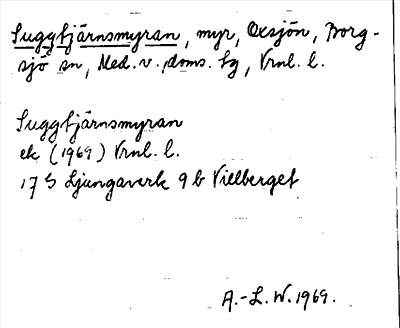 Suggtjärnsmyran, myr, Oxsjön, Borg-
sjö sn, Med. v. doms. sg, Vrnl. l.
Suggtjärnsmyran
ek (1969) Vrnl. l.
17 G Ljungaverk 9 b Viellberget
A.-L. W. 1969.